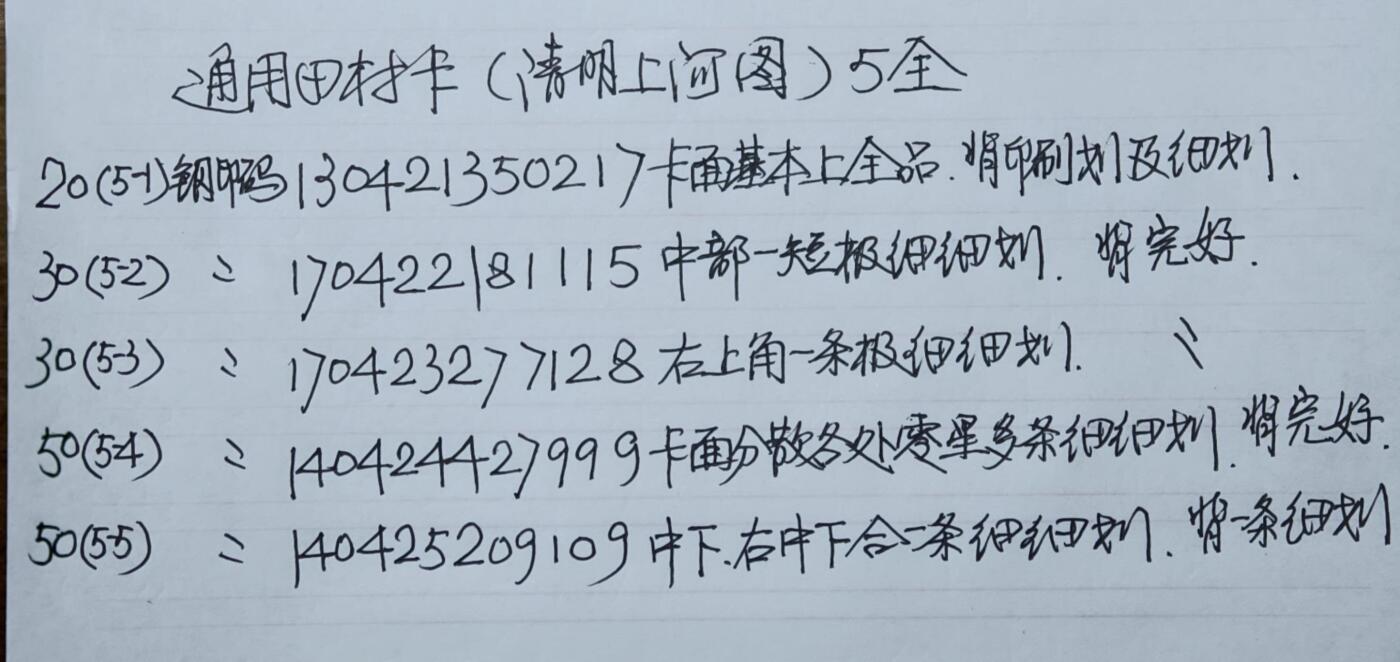 通用田村卡（清明上河图）5全
20(5-1)钢印码130421350217卡面基本上全品.背印刷划及细划.
30(5-2) 〃 170422181115中部一短极细细划.背完好.
30(5-3) 〃 170423277128右上角一条极细细划. 〃
50(5-4) 〃 140424427999卡面分散各处零星多条细细划.背完好.
50(5-5) 〃 140425209109中下.右中下合二条细细划.背一条细划